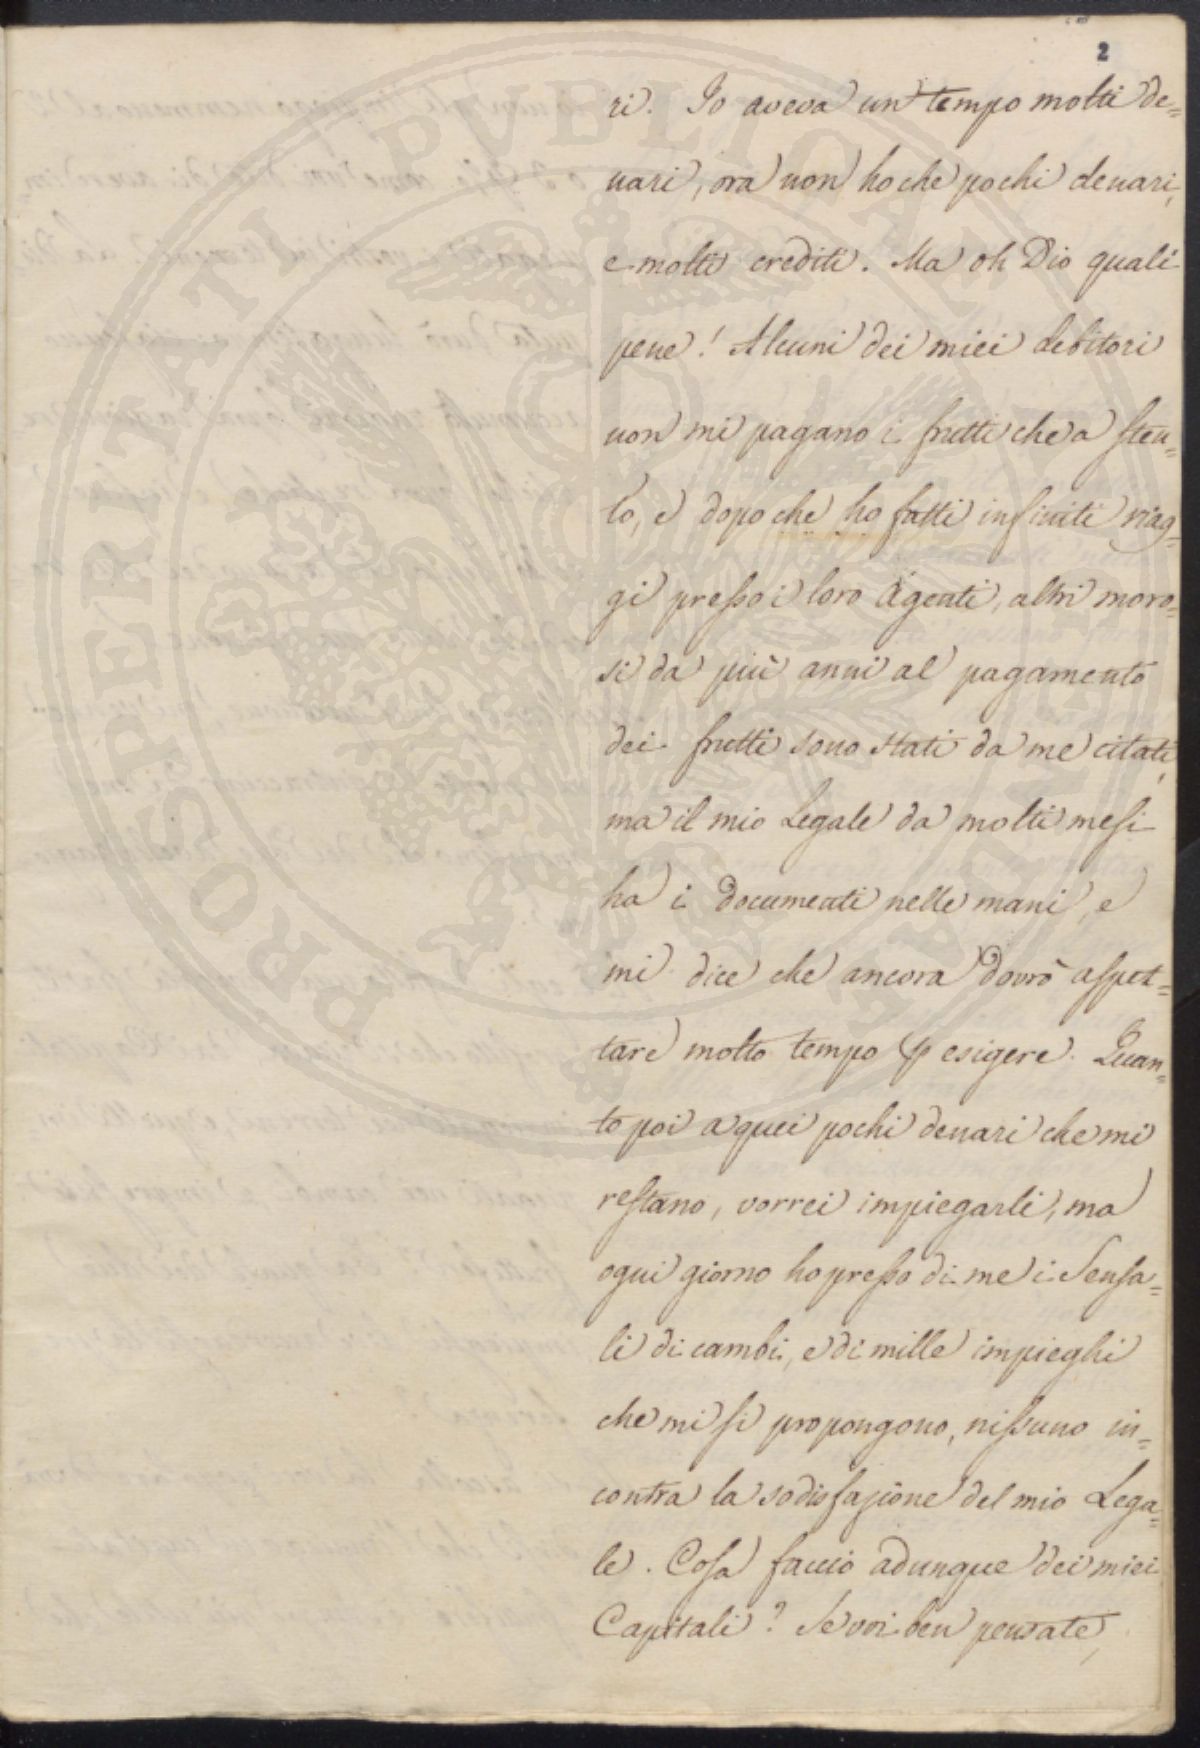 2
ri. Io aveva un tempo molti de=
nari, ora non ho che pochi denari,
e molti crediti. Ma oh Dio quali
pene! Alcuni dei miei debitori
non mi pagano i frutti che a sten=
to, e dopo che ho fatti infiniti viag=
gi presso i loro Agenti, altri moro=
si da più anni al pagamento
dei frutti sono stati da me citati,
ma il mio Legale da molti mesi
ha i documenti nelle mani, e
mi dice che ancora dovrò aspet=
tare molto tempo p esigere. Quan=
to poi a quei pochi denari che mi
restano, vorrei impiegarli, ma
ogni giorno ho presso di me i Sensa=
li di cambi, e di mille impieghi
che mi si propongono, nissuno in=
contra la sodisfazione del mio Lega=
le. Cosa faccio adunque dei miei
Capitali? Se voi ben pensate,
PROSPERITATI PUBLICAE AUGENDAE